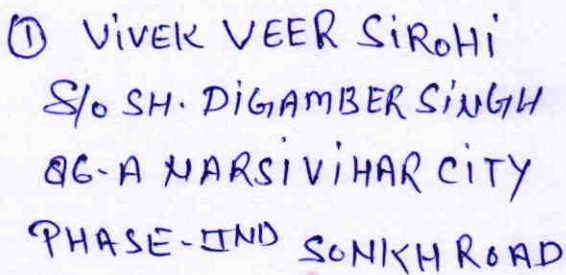 ① ViVEK VEER SiROHi
S/o SH. DiGAMBER SiNGH
86-A NARSI ViHAR CiTY
PHASE-IIND SONKH ROAD